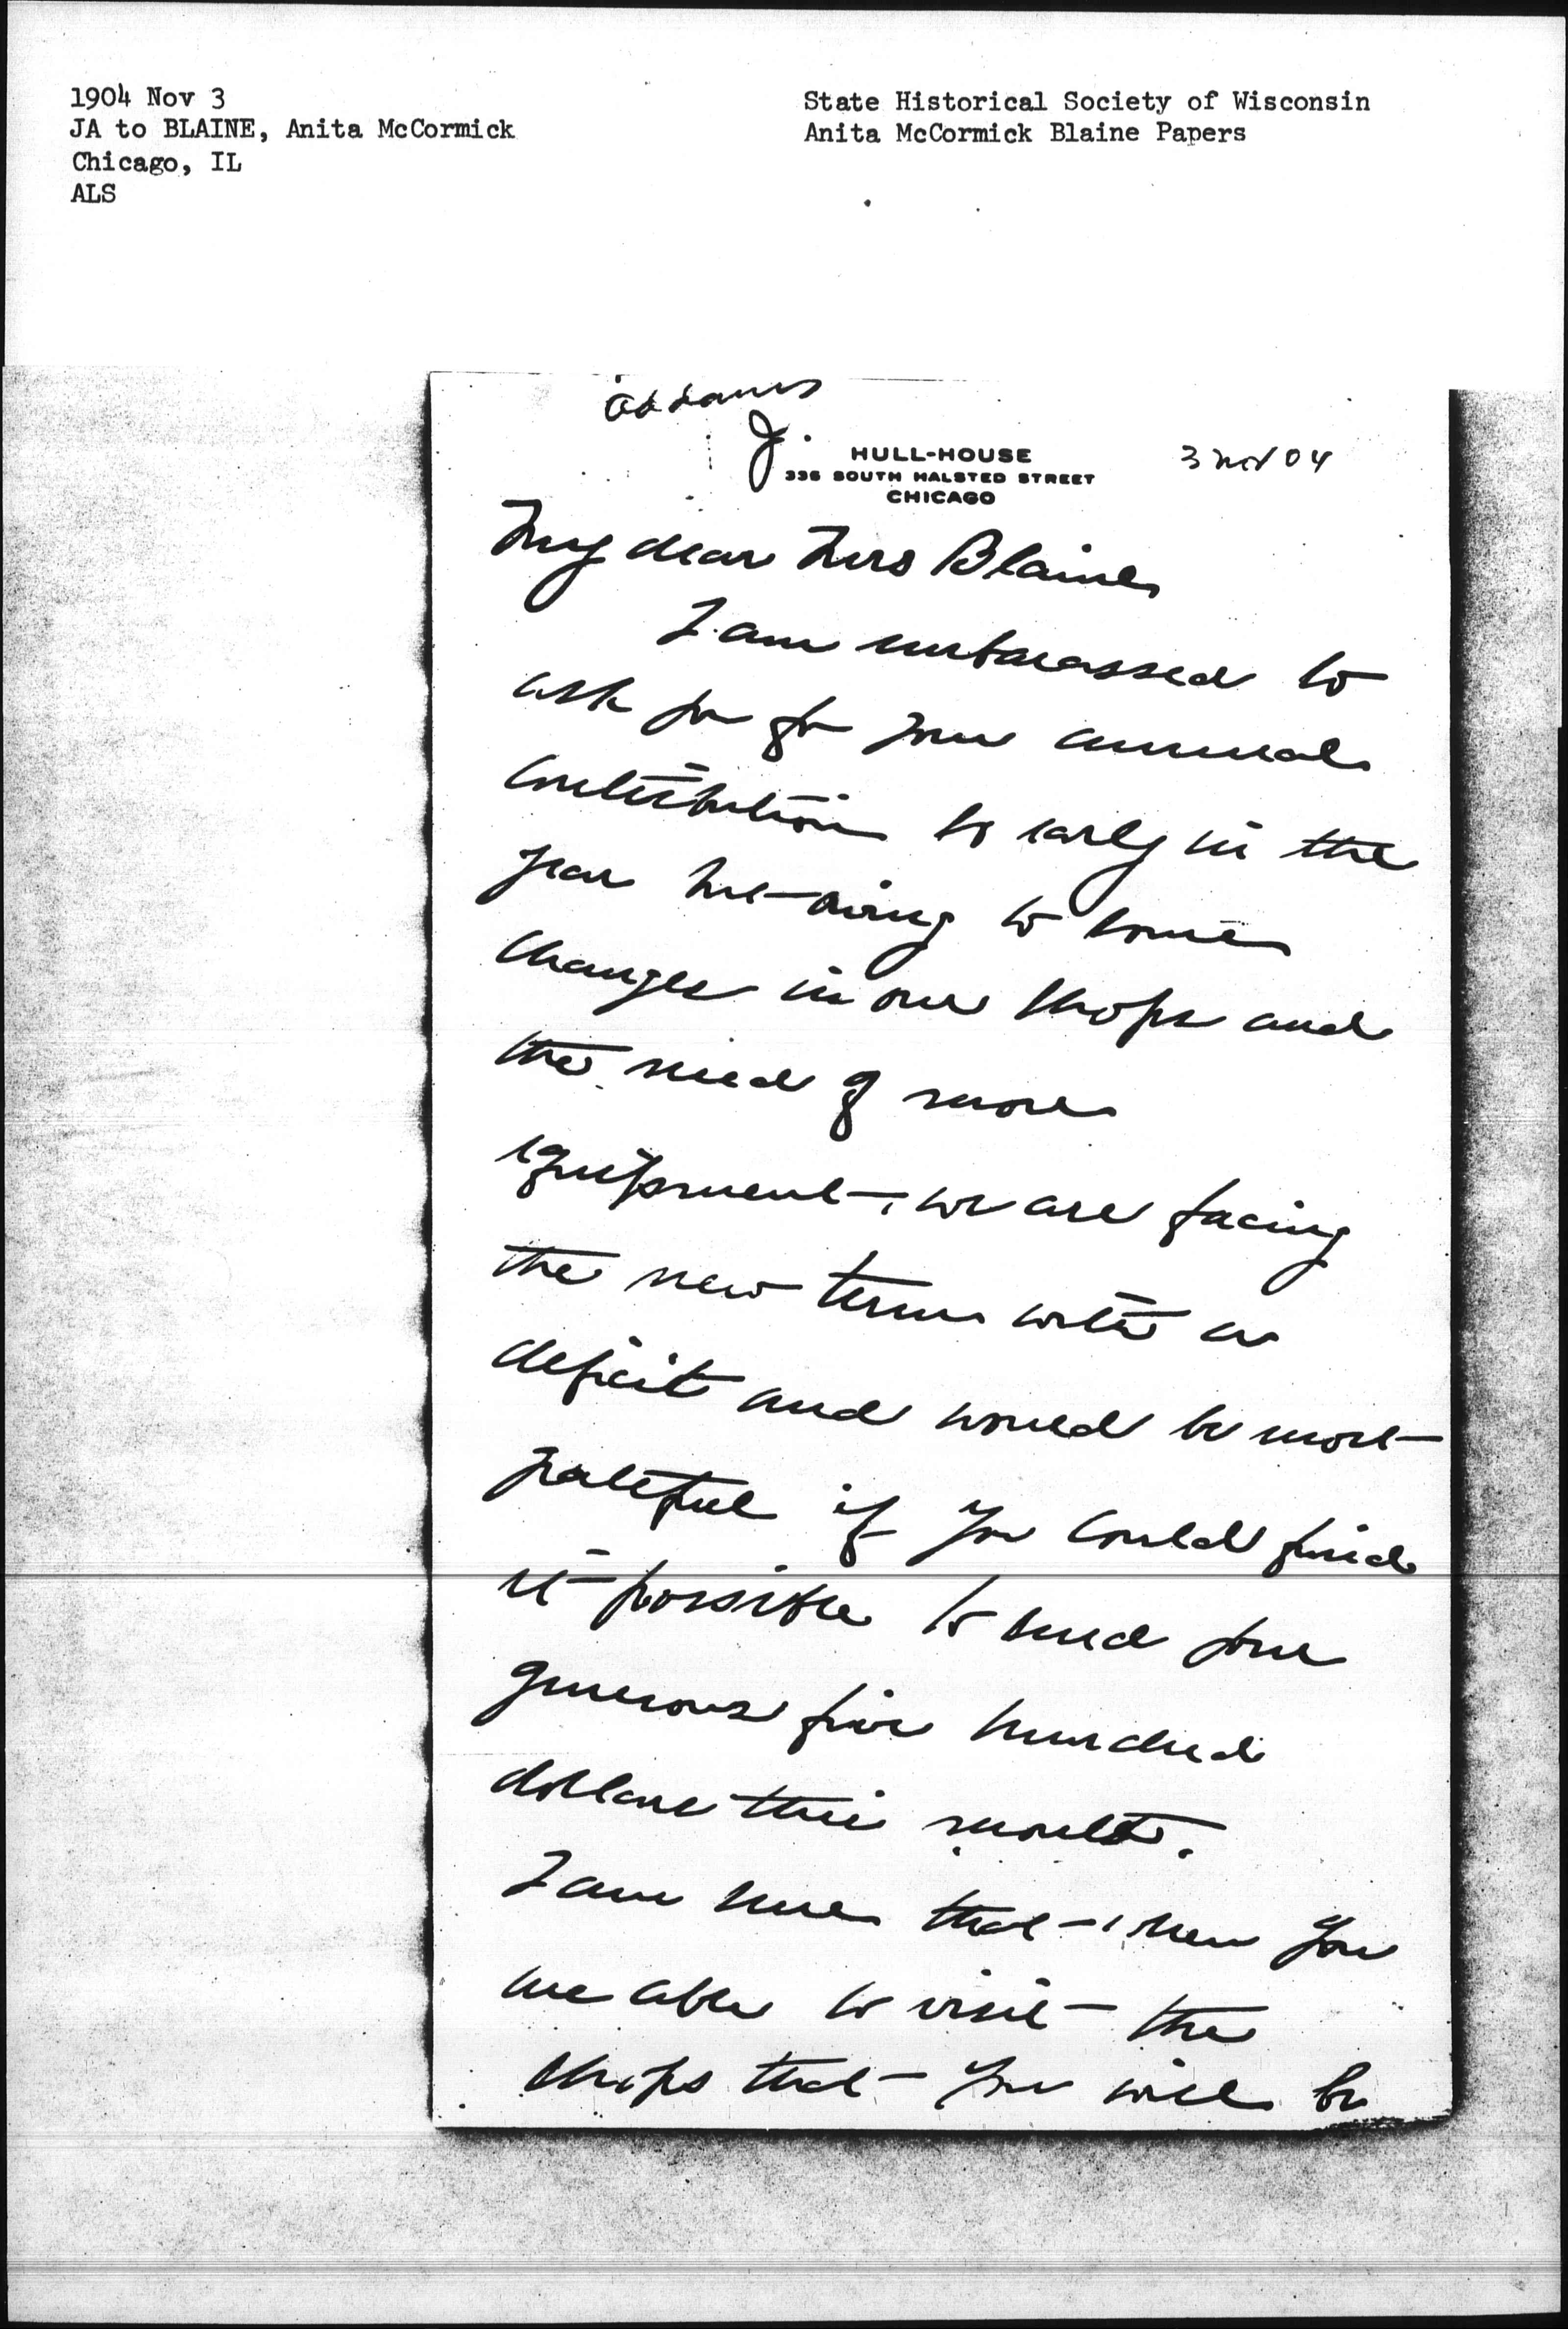 1904 Nov 3
JA to BLAINE, Anita McCormick
Chicago, IL
ALS
State Historical Society of Wisconsin
Anita McCormick Blaine Papers
Addams
J.
3 Nov 04
HULL-HOUSE
335 SOUTH HALSTED STREET
CHICAGO
My dear Mrs Blaine
I am embarassed to
ask you for your annual
contribution so early in the
year but owing to some
changes in our shops and
the need of more
equipment, we are facing
the new term with a
deficit and would be most
grateful if you could find
it possible to send your
generous five hundred
dollars this month.
I am sure that when you
are able to visit the
shops that you will be